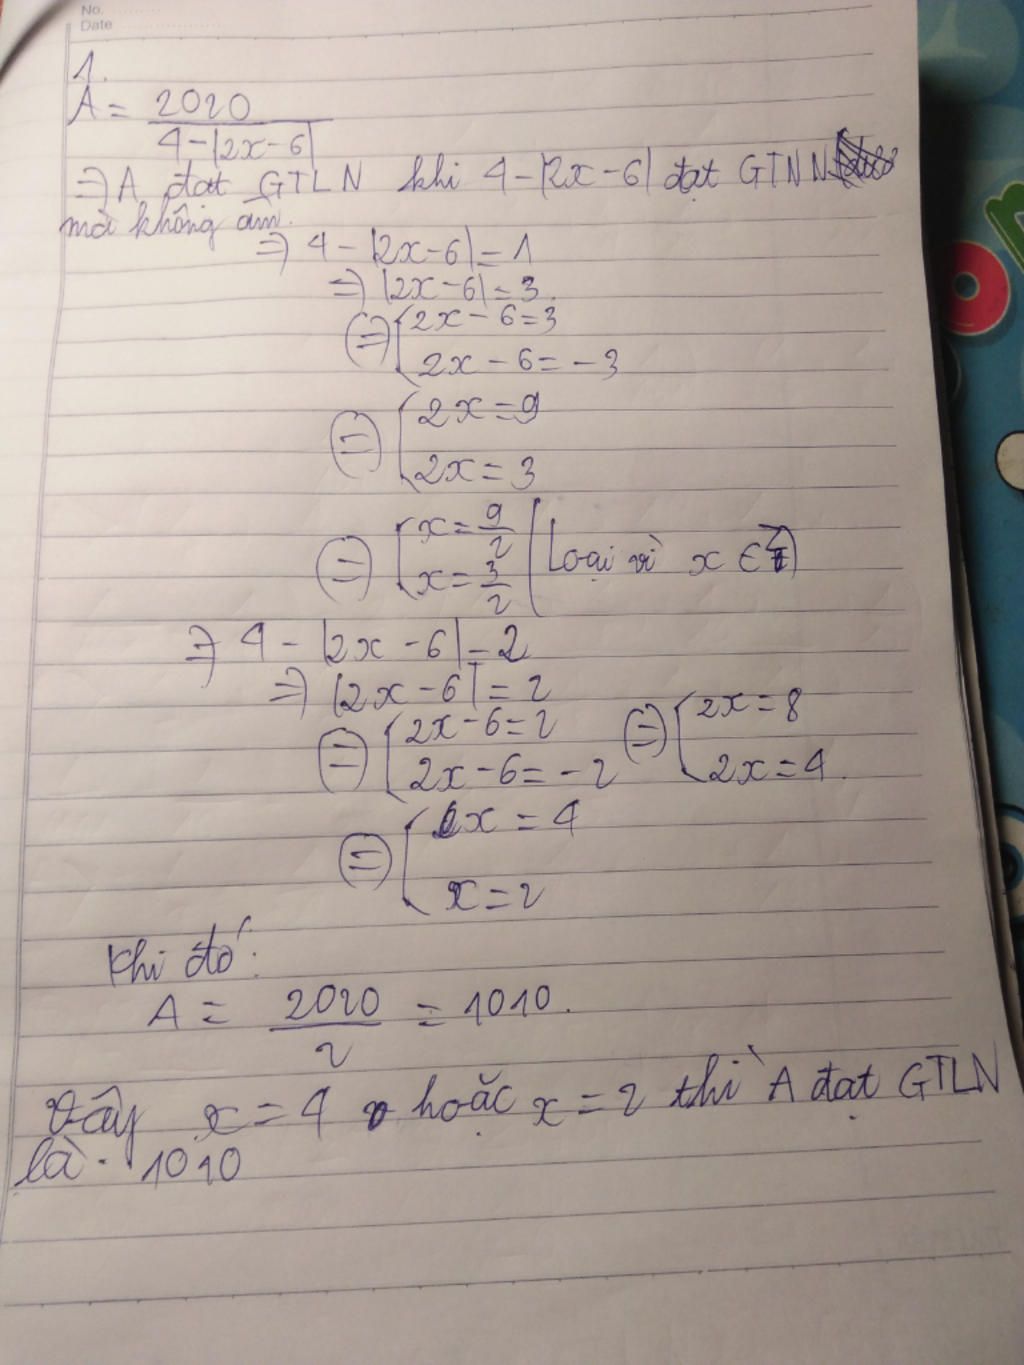 No.
Date
1.
A = 2020 / 4-|2x-6|
=> A đạt GTLN khi 4-|2x-6| đạt GTNN
mà không âm.
=> 4-|2x-6|=1
=> |2x-6|=3.
<=> [2x-6=3
2x-6=-3
<=> [2x=9
2x=3
<=> [x=9/2
x=3/2 (Loại vì x ∈ Z)
=> 4-|2x-6|=2
=> |2x-6|=2
<=> [2x-6=2
2x-6=-2
<=> [2x=8
2x=4.
<=> [x=4
x=2
Khi đó:
A = 2020/2 = 1010.
Vậy x=4 hoặc x=2 thì A đạt GTLN
là. 1010